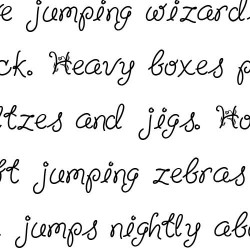 e jumping wizards
ck. Heavy boxes p
ltzes and jigs. Ho
ft jumping zebras
. jumps nightly abo